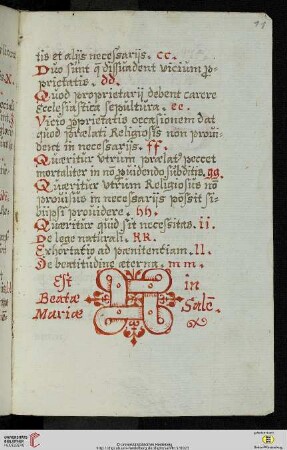 11
tis et alijs necessarijs. cc.
Duo sunt q̃ dissuadent vicium p̲-
prietatis. dd.
Quod proprietarij debent carere
Ecclesiastica sepultura. ee.
Vicio p̲prietatis occasionem dat
quod prælati Religiosis non proui
dent in necessarijs. ff.
Quæritur Vtrum prælat9 peccet
mortaliter in nõ p̲uidendo subditis. gg.
Quæritur Vtrum Religiosus nõ
prouisus in necessarijs possit si-
bijpsi prouidere. hh.
Quæritur quid sit necessitas. ii.
De lege naturali. kk.
Exhortatio ad pænitentiam. ll.
De beatitudine æterna. mm.
Est in
Beatæ Salẽ
Mariæ
UNIVERSITÄTS-
BIBLIOTHEK
HEIDELBERG
© Universitätsbibliothek Heidelberg